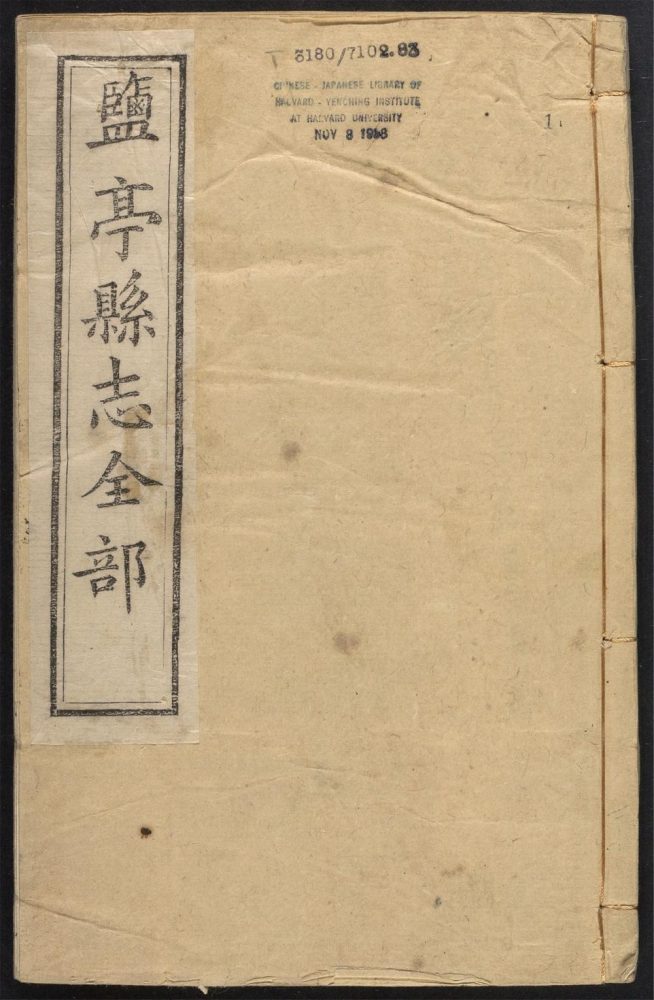 鹽亭縣志全部
T 3180/7102.83
CHINESE - JAPANESE LIBRARY OF
HARVARD - YENCHING INSTITUTE
AT HARVARD UNIVERSITY
NOV 8
1